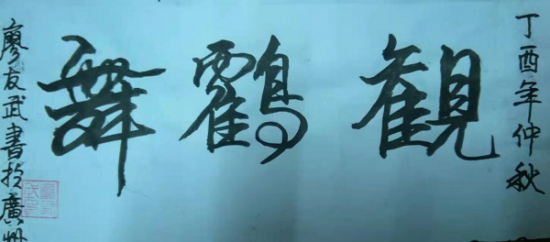 丁酉年仲秋
観
鸖
舞
廖友武書扵廣州